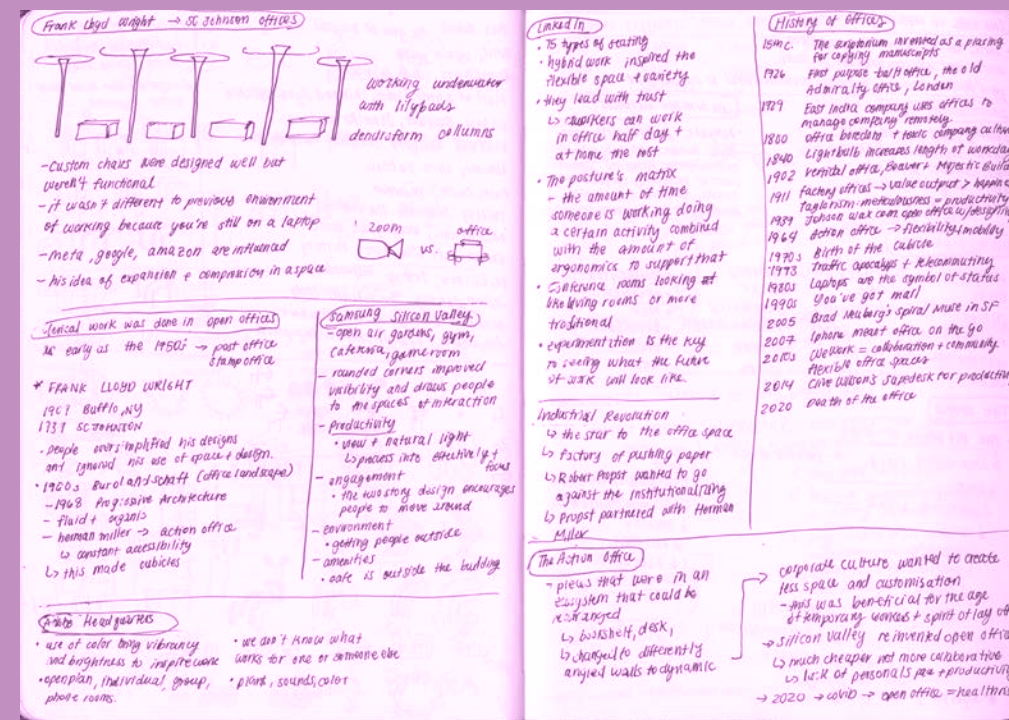 Frank Lloyd Wright → SC Johnson offices
working underwater
with lilypads
dendriform collumns
- Custom chairs were designed well but
weren't functional
- it wasn't different to previous environment
of working because you're still on a laptop
- meta, google, amazon are influenced
- his idea of expansion + compression in a space
zoom
vs.
office
Clerical work was done in open offices
as early as the 1950s → post office
stamp office
* FRANK LLOYD WRIGHT
NY
SC JOHNSON
· people oversimplified his designs
and ignored his use of space + design.
· 1960s Burolandschaft (office landscape)
- 1968 Progressive Architecture
- fluid + organic
- herman miller → action office
↳ constant accessibility
↳ this made cubicles
Samsung Silicon Valley
- open air gardens, gym,
cafeteria, game room
- rounded corners improved
visibility and draws people
to the spaces of interaction
- productivity
· view + natural light
↳ process into effectively +
focus
- engagement
· the two story design encourages
people to move around
- environment
· getting people outside
- amenities
· cafe is outside the building
Headquarters
· use of color bring vibrancy
and brightness to inspire work
· open plan, individual, group,
phone rooms.
· we don't know what
works for one or someone else
· plant, sounds, color
LinkedIn
· 75 types of seating
· hybrid work inspired the
flexible space + variety
· they lead with trust
↳ coworkers can work
in office half day +
at home the rest
· The posture's matrix
- the amount of time
someone is working doing
a certain activity combined
with the amount of
ergonomics to support that
· Conference rooms looking
like living rooms or more
traditional
· experimentation is the key
to seeing what the future
of work will look like
Industrial Revolution
↳ the star to the office space
↳ factory of pushing paper
↳ Rober Propst wanted to go
against the institutionalizing
↳ Propst partnered with Herman
Miller
History of Offices
15th c. The scriptorium invented as a placing
for copying manuscripts
1726 First purpose built office, the old
Admiralty office, London
1729 East India company uses offices to
manage company remotely
1800 office boredom + toxic company culture
1840 Lightbulb increases length of workday
1902 vertical office, Beaver + Majestic Build
1911 factory offices → value output > happine
Taylorism: meticulousness = productivity
1939 Johson wax com open office w/
1964 Action office → flexibility + mobility
1970s Birth of the cubicle
1973 traffic apocalyps + telecommuting
1980s Laptops are the symbol of status
1990s You've got mail
2005 Brad Neuberg's spiral Muse in SF
2007 Iphone meant office on the go
2010s WeWork = collaboration + community
flexible office spaces
2014 Clive Wilson's for productiv
2020 Death of the office
The Action Office
- pieces that were in an
ecosystem that could be
rearranged
↳ bookshelf, desk,
↳ changed to differently
angled walls to dynamic
→ corporate culture wanted to create
less space and customisation
- this was beneficial for the age
of temporary workers + spirit of lay off
→ silicon valley reinvented open office
↳ much cheaper not more collaborative
↳ lack of personal space + productivity
→ 2020 → covid → open office = health